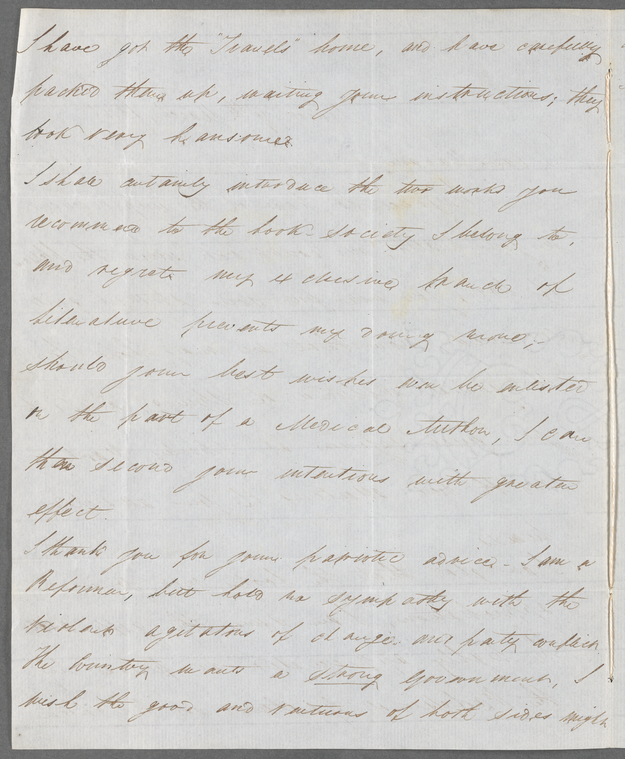 I have got the "Travels" home, and have carefully
packed them up, waiting your instructions; they
look very hansome
I shall certainly introduce the two works you
recommend to the book-society I belong to,
and regret my exclusive branch of
literature prevents my doing more,-
should your best wishes ever be enlisted
on the part of a Medical Author, I can
then second your intentions with greater
effect.
I thank you for your patriotic advice - I am a
Reformer, but hold no sympathy with the
violent agitators of change and party conflict
The Country wants a strong Government, I
wish the good and virtuous of both sides might